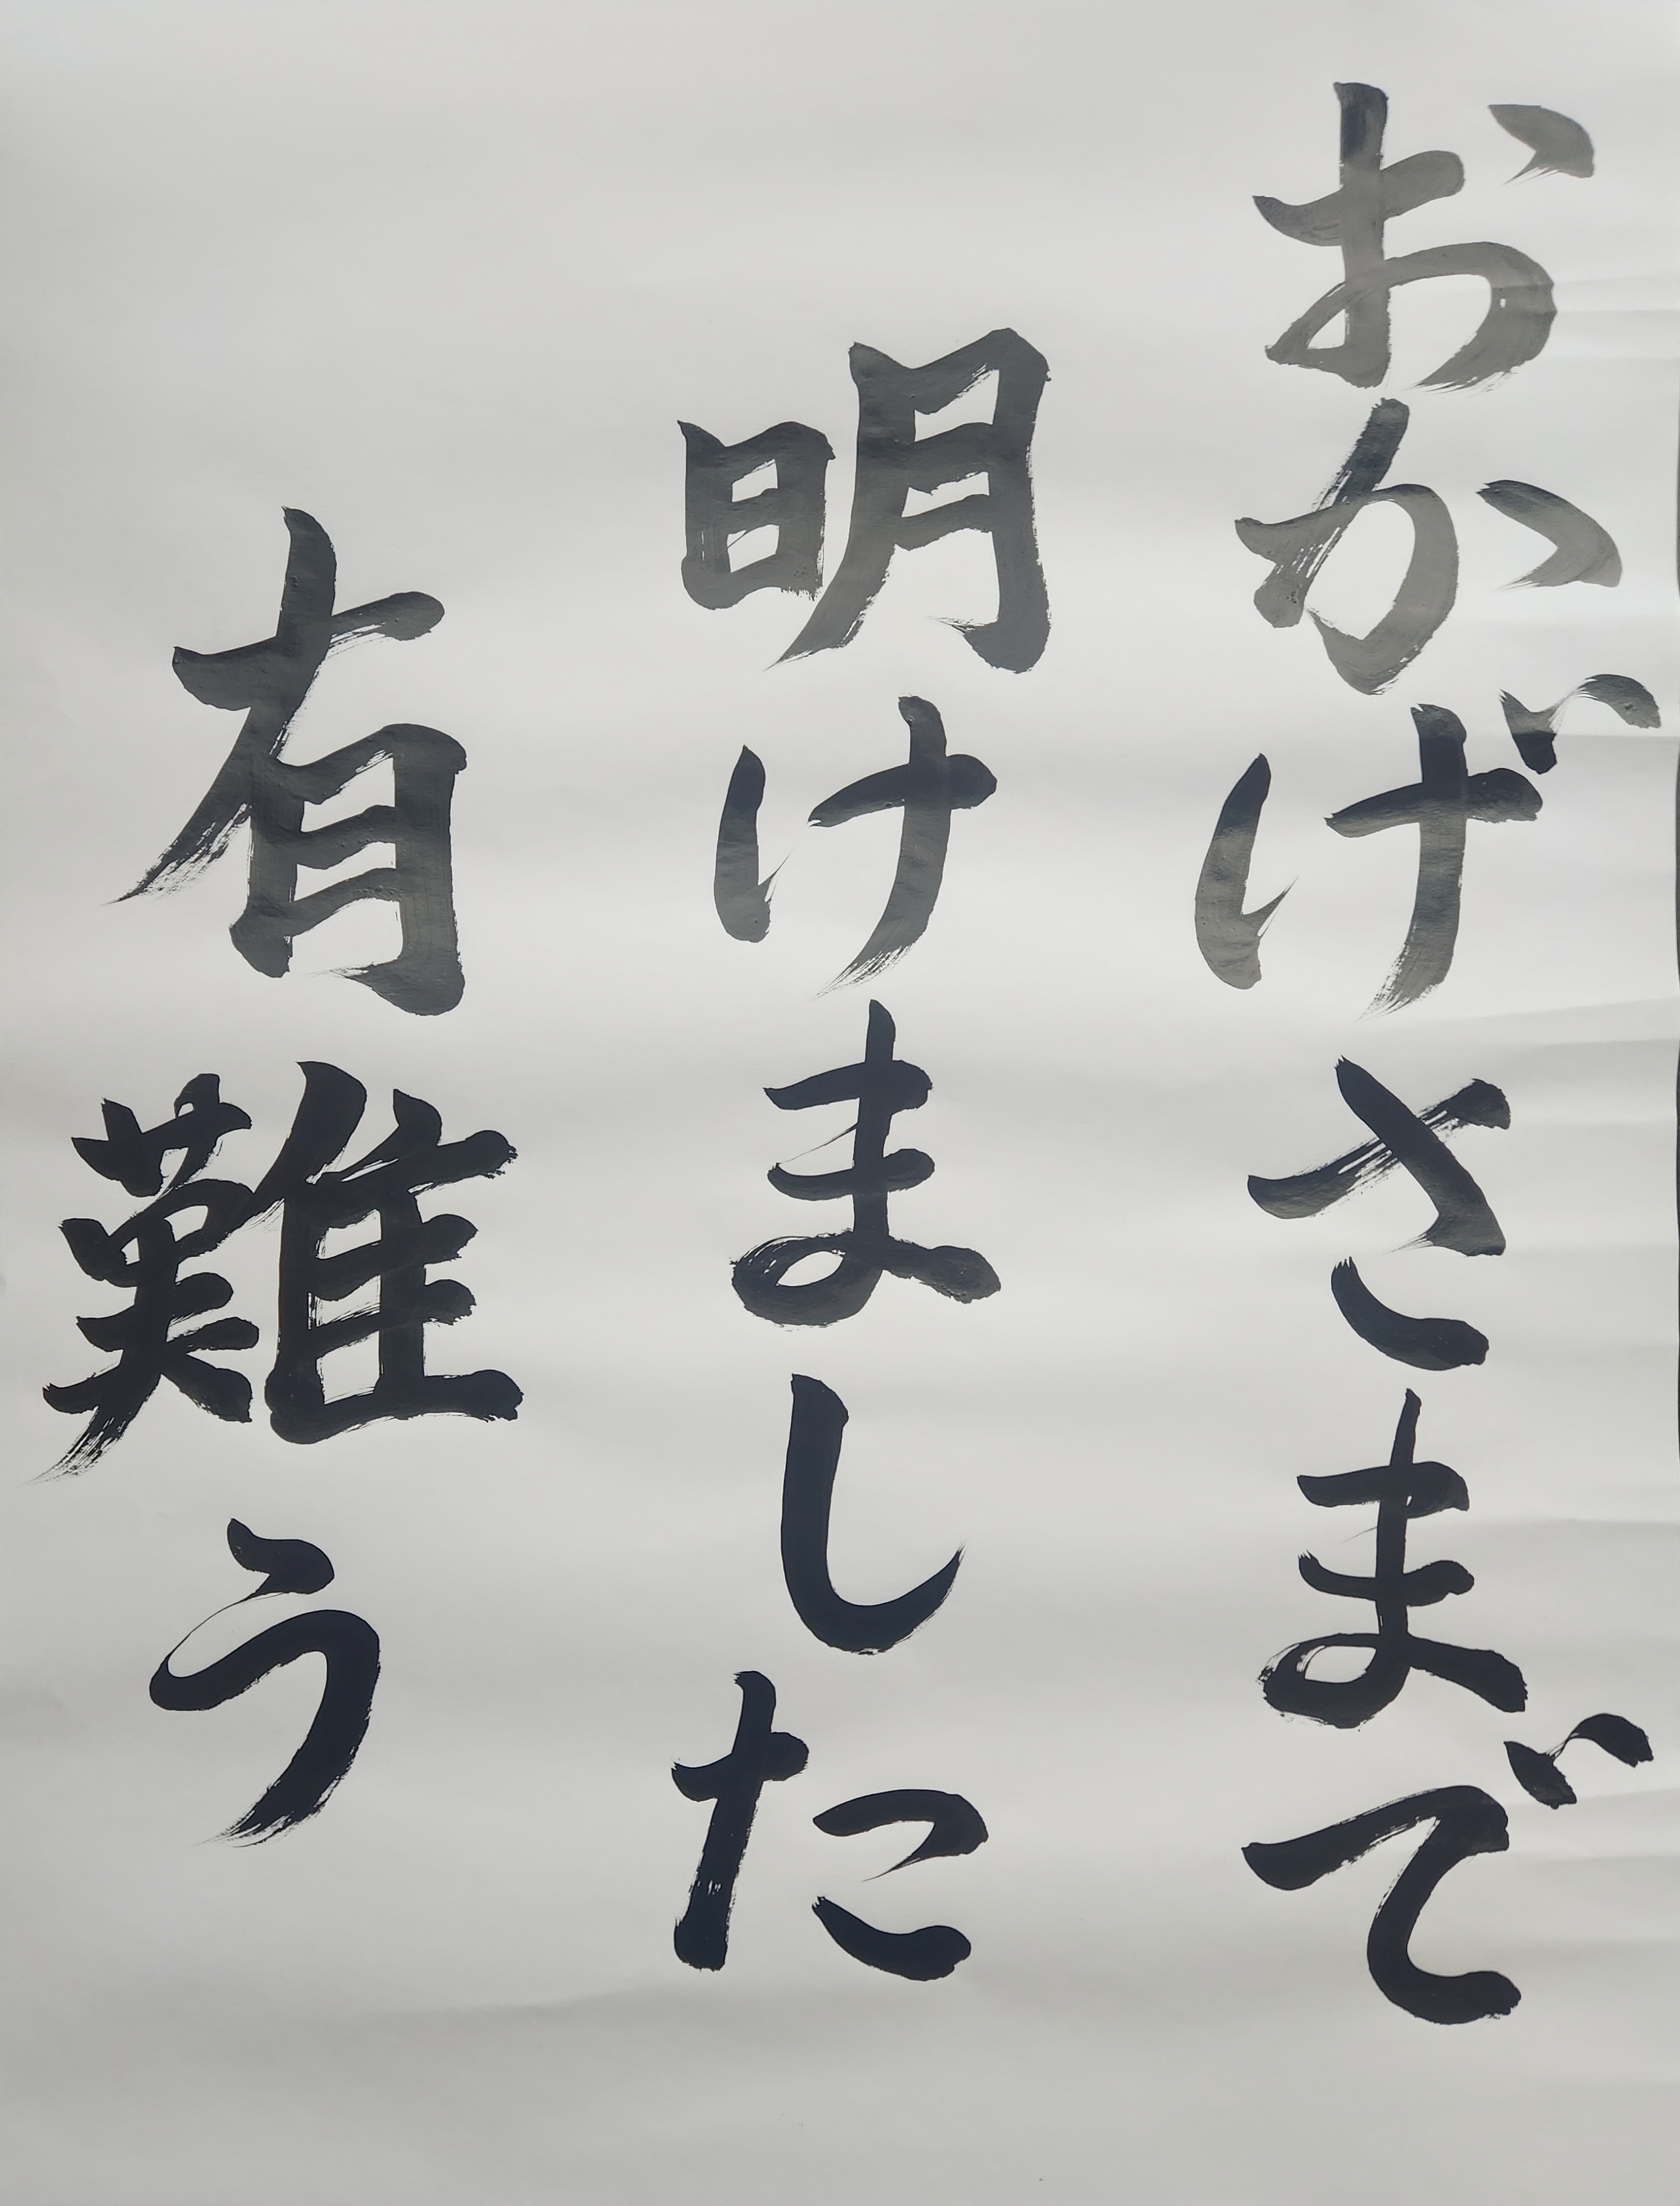 おかげさまで
明けました
有難う